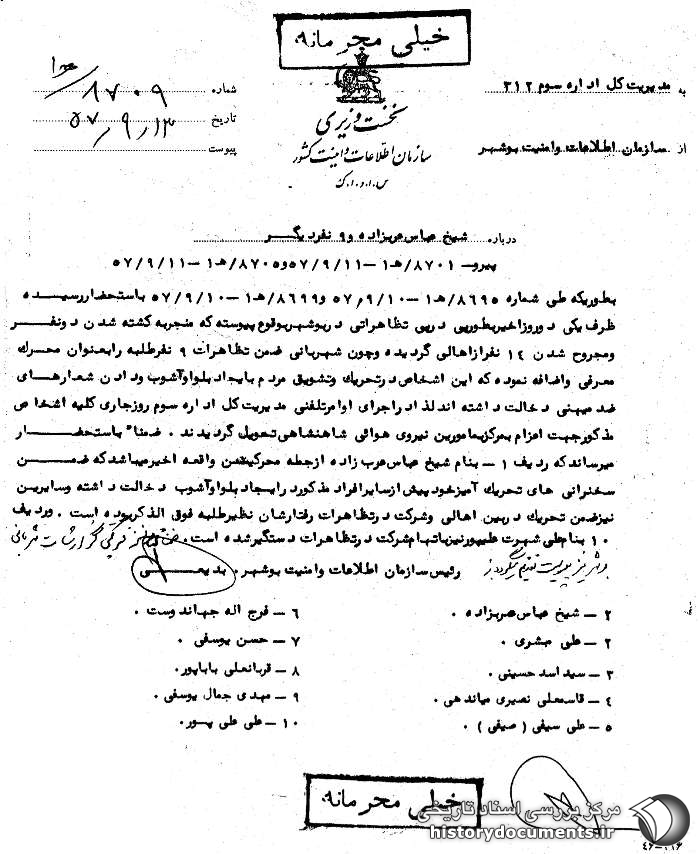 خیلی محرمانه
به مدیریت کل اداره سوم ۳۱۲
از سازمان اطلاعات وامنیت بوشهر
نخست وزیری
سازمان اطلاعات وامنیت کشور
س.ا.و.ا.ک
شماره ۸۷۰۹/ ه‍ ۱
تاریخ ۵۷/۹/۱۳
پیوست
درباره شیخ عباس عربزاده و ۹ نفر دیگر
پیرو ۸۷۰۱/ه‍ ۱ – ۵۷/۹/۱۱ و ۸۷۰۵/ه‍ ۱ – ۵۷/۹/۱۱
بطوریکه طی شماره ۸۶۹۵/ه‍ ۱ – ۵۷/۹/۱۰ و ۸۶۹۹/ه‍ ۱ – ۵۷/۹/۱۰ باستحضار رسیده
ظرف یکی دو روز اخیر بطور پی در پی تظاهراتی در بوشهر بوقوع پیوسته که منجر به کشته شدن دو نفر
ومجروح شدن ۱۴ نفر از اهالی گردیده وچون شهربانی ضمن تظاهرات ۹ نفر طلبه را بعنوان محرک
معرفی واضافه نموده که این اشخاص در تحریک وتشویق مردم بایجاد بلوا وآشوب ودادن شعارهای
ضد میهنی دخالت داشته اند لذا در اجرای اوامر تلفنی مدیریت کل اداره سوم روز جاری کلیه اشخاص
مذکور جهت اعزام بمرکز بمامورین نیروی هوائی شاهنشاهی تحویل گردیدند . ضمنا" باستحضار
میرساند که ردیف ۱ – بنام شیخ عباس عرب زاده از جمله محرکین واقعه اخیر میباشد که ضمن
سخنرانی های تحریک آمیز خود پیش از سایر افراد مذکور در ایجاد بلوا وآشوب دخالت داشته وسایرین
نیز ضمن تحریک در بین اهالی وشرکت در تظاهرات رفتارشان نظیر طلبه فوق الذکر بوده است . وردیف
۱۰ بنام علی شهرت علیپور نیز باتهام شرکت در تظاهرات دستگیر شده است. گزارشات شهربانی
بوشهر نیز به پیوست تقدیم میگردد
رئیس سازمان اطلاعات وامنیت بوشهر . بدیعی
۲ – شیخ عباس عربزاده .
۲ – علی مبشری .
۳ – سید اسد حسینی .
۴ – قاسمعلی نصیری میاندهی .
۵ – علی سیفی ( صیفی ) .
۶ – فرج اله جهاندوست .
۷ – حسن یوسفی .
۸ – قربانعلی باباپور.
۹ – مهدی جمال یوسفی .
۱۰ – علی علی پور.
خیلی محرمانه
مرکز بررسی اسناد تاریخی
historydocuments.ir